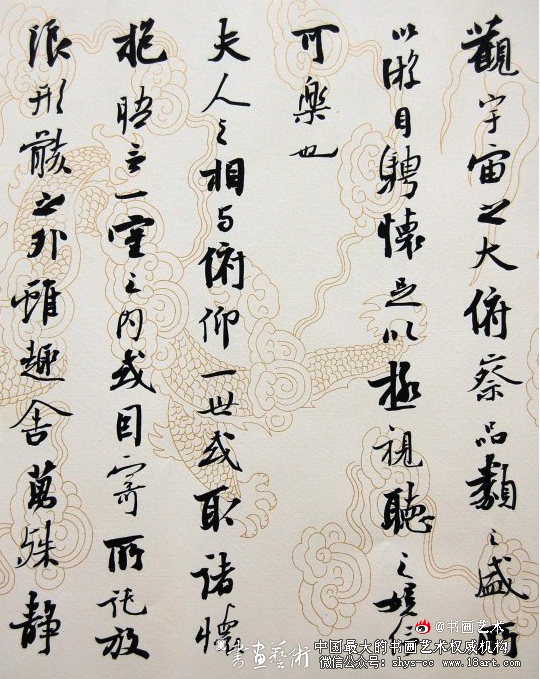 觀宇宙之大俯察品類之盛所
以游目騁懷足以極視聽之娛信
可樂也
夫人之相與俯仰一世或取諸懷
抱晤言一室之內或因寄所託放
浪形骸之外雖趣舍萬殊靜
@书画艺术
書畫藝術
中国最大的书画艺术权威机构
微信公众号：shys-cc www.18art.com